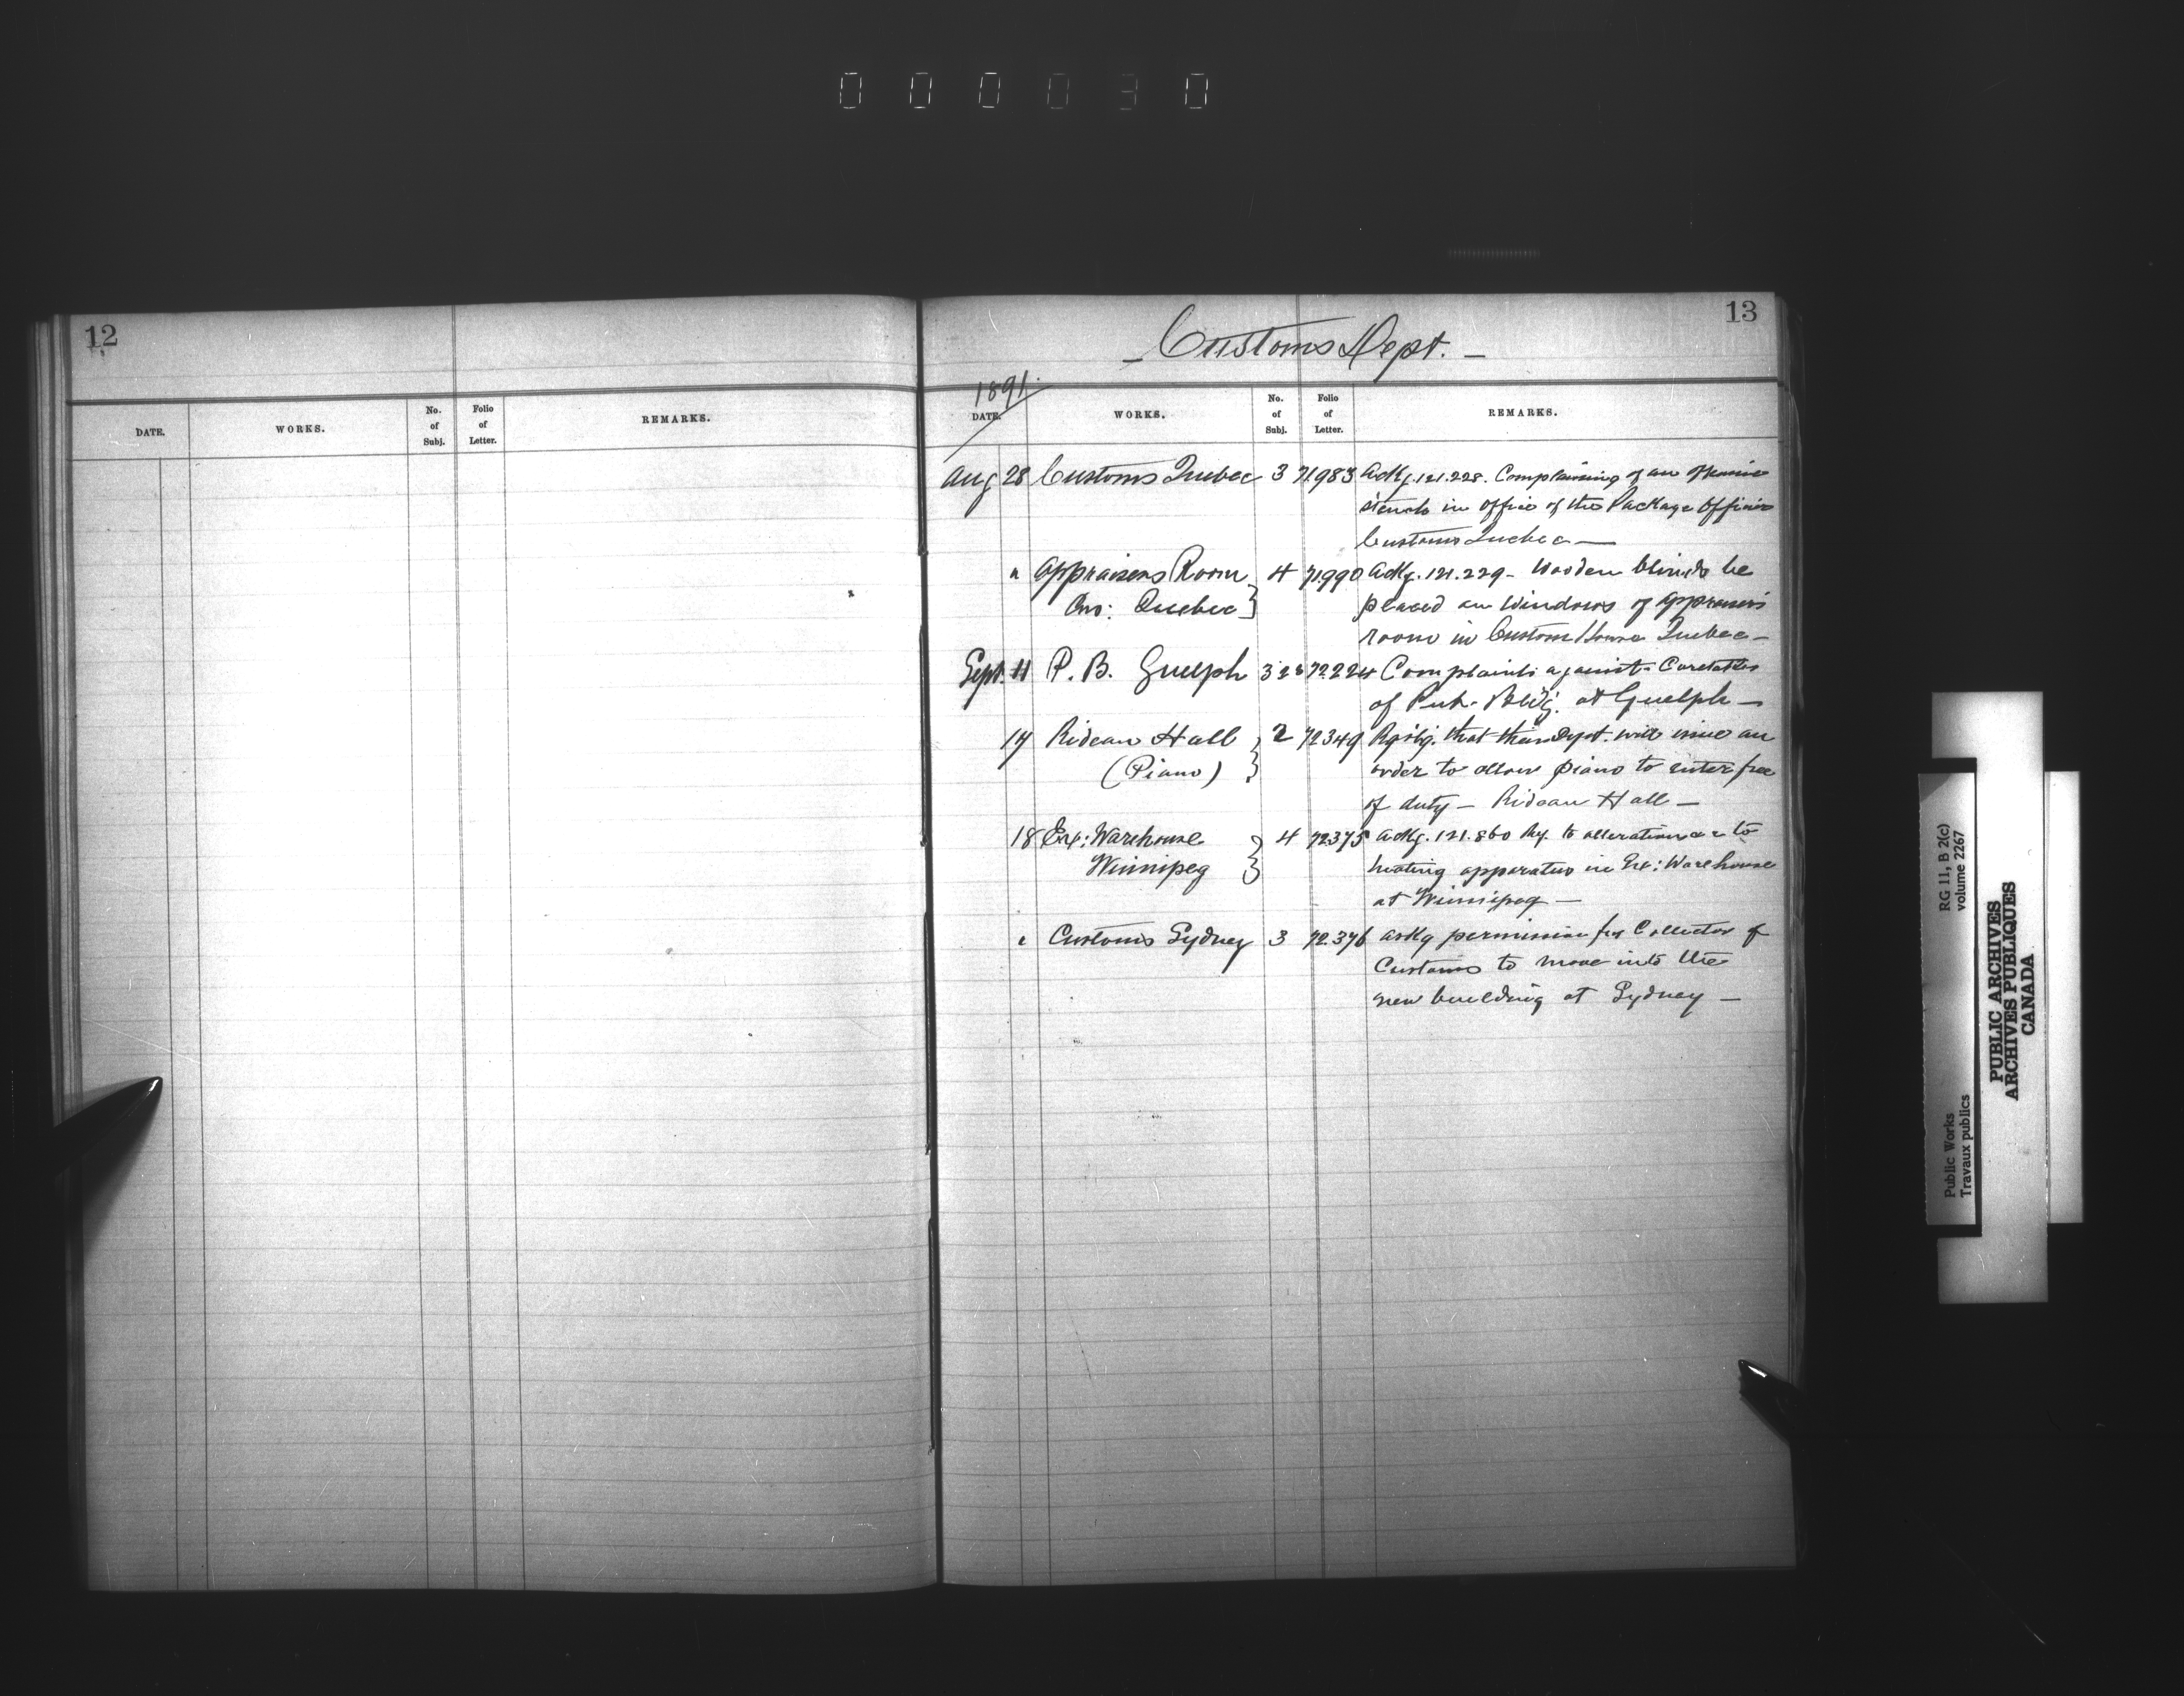 000030
12
DATE. WORKS. No. of Subj. Folio of Letter. REMARKS.
13
Customs Dept.
1891.
DATE. WORKS. No. of Subj. Folio of Letter. REMARKS.
Aug 28 Customs Quebec 3 71983 Ackg. 121.228. Complaining of an offensive
stench in office of the Package Officer
Customs Quebec —
" Appraisers Room 4 71990 Ackg. 121.229 - Wooden blinds be
Quebec placed on Windows of Appraisers
room in Custom House Quebec —
Sept. 11 P. B. Guelph 72224 Complaints against Caretaker
of Pub. Bldg. at Guelph —
17 Rideau Hall 2 72349 that Dept. will issue an
(Piano) order to allow piano to enter free
of duty — Rideau Hall —
18 Ex: Warehouse 4 72375 Ackg. 121.860 to alterations to
Winnipeg heating apparatus in Ex: Warehouse
at Winnipeg —
" Customs Sydney 3 72376 Askg permission for Collector of
Customs to move into the
new building at Sydney —
RG 11, B 2(c)
volume 2267
Public Works
Travaux publics
PUBLIC ARCHIVES
ARCHIVES PUBLIQUES
CANADA